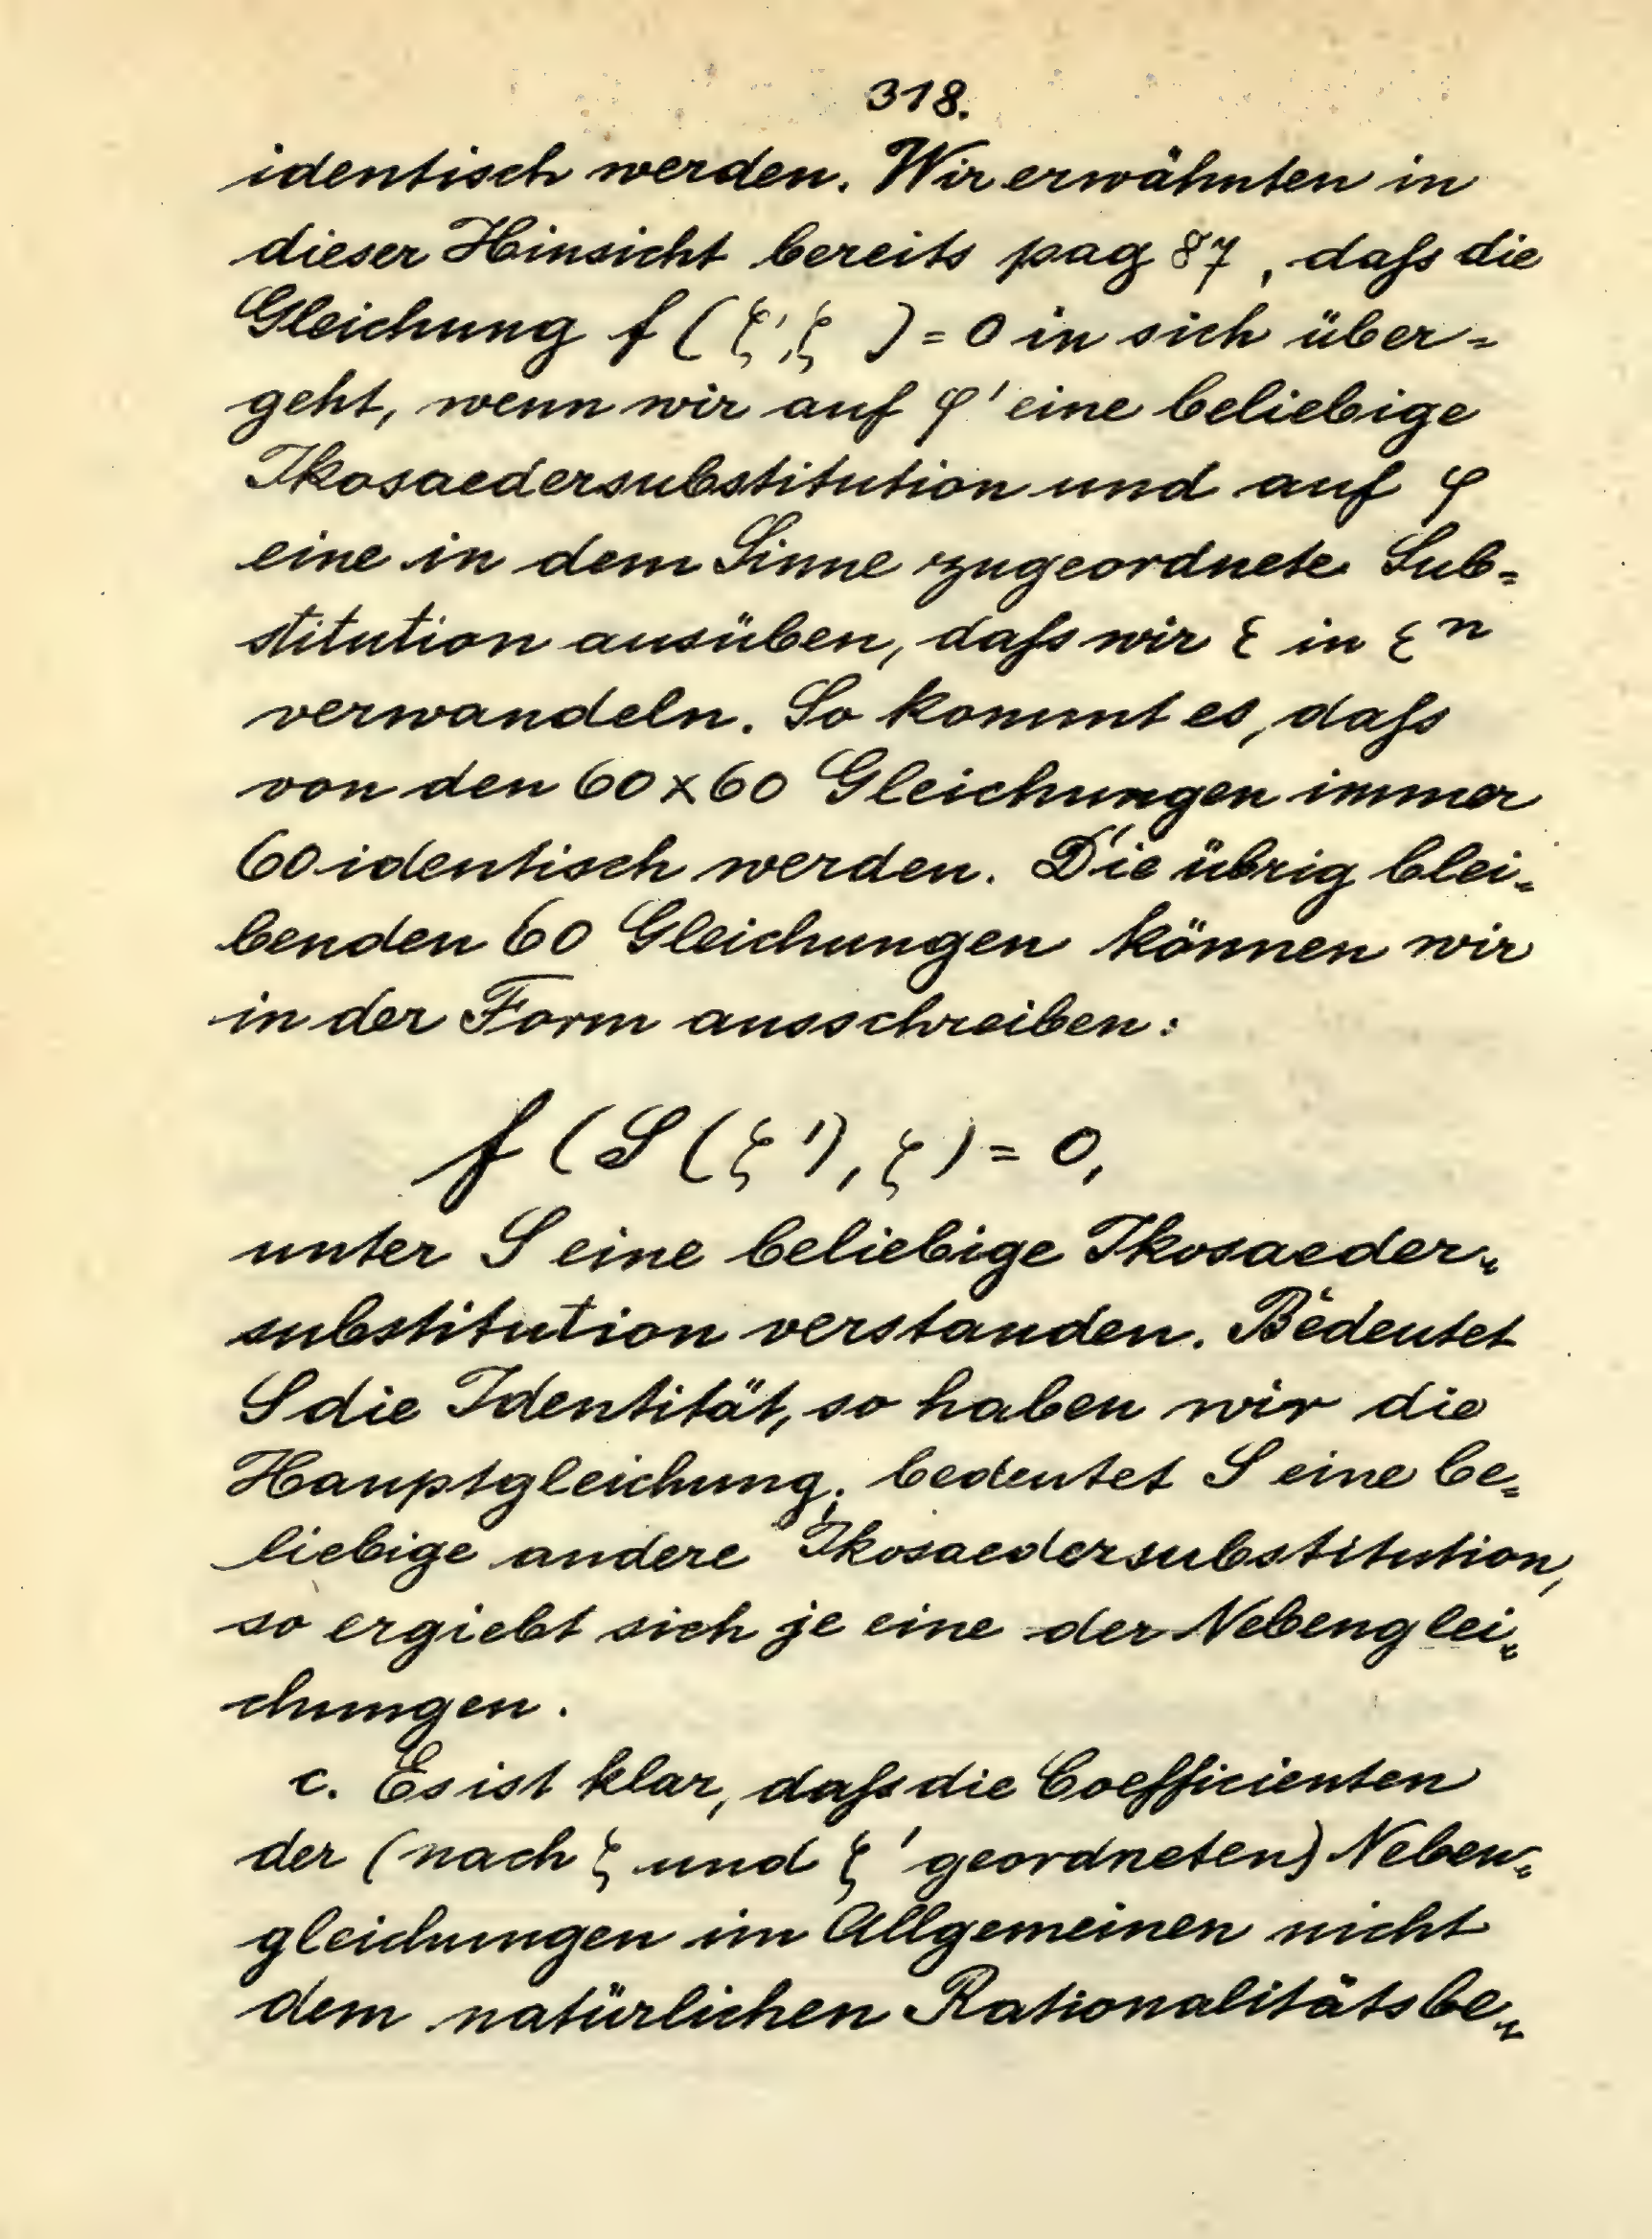 318.
identisch werden. Wir erwähnten in
dieser Hinsicht bereits pag 87, daſs die
Gleichung f(ζ',ζ) = 0 in sich über=
geht, wenn wir auf φ' eine beliebige
Ikosaedersubstitution und auf φ
eine in dem Sinne zugeordnete Sub=
stitution ausüben, daſs wir ε in εⁿ
verwandeln. So kommt es, daſs
von den 60×60 Gleichungen immer
60 identisch werden. Die übrig blei=
benden 60 Gleichungen können wir
in der Form ausschreiben:
f(S(ζ'),ζ) = 0,
unter S eine beliebige Ikosaeder=
substitution verstanden. Bedeutet
S die Identität, so haben wir die
Hauptgleichung; bedeutet S eine be=
liebige andere Ikosaedersubstitution,
so ergiebt sich je eine der Nebenglei=
chungen.
c. Es ist klar, daſs die Coefficienten
der (nach ζ und ζ' geordneten) Neben=
gleichungen im Allgemeinen nicht
dem natürlichen Rationalitätsbe=